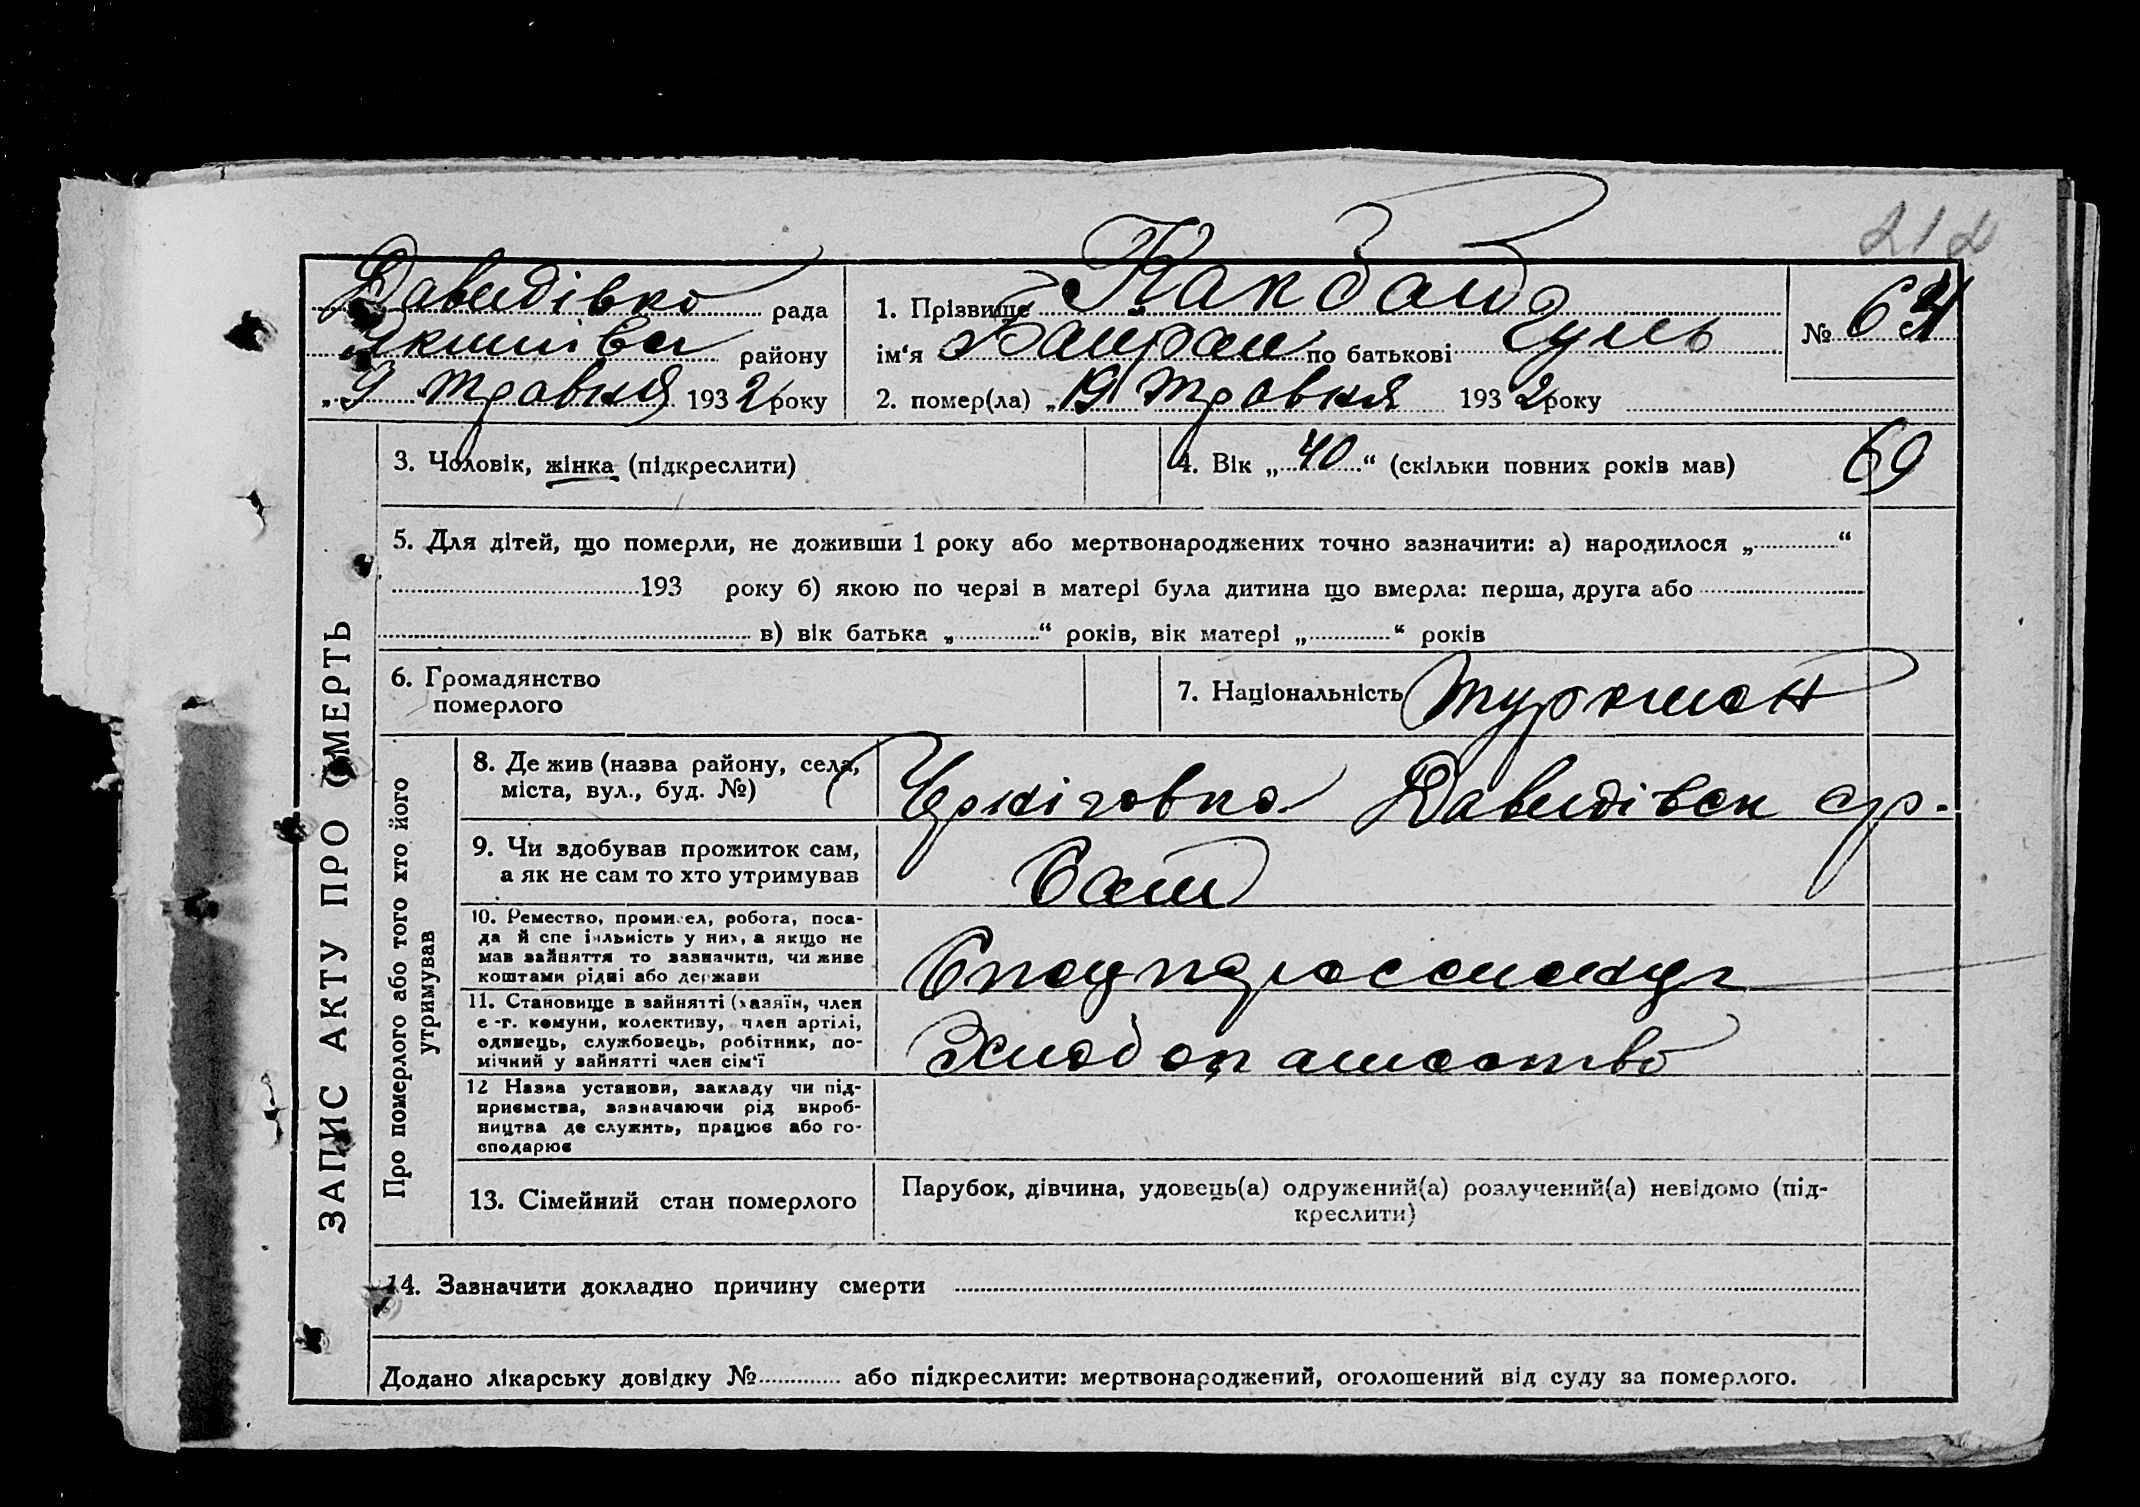 212
Давидівка рада
Якимівськ району
„ 9 травня 1932 року
1. Прізвище Какбай
ім‘я Байрам по батькові Гуль
2. помер(ла) „19 травня 1932 року
№ 64
3. Чоловік, жінка (підкреслити)
4. Вік „ 40 “ (скільки повних років мав)
69
5. Для дітей, що померли, не доживши 1 року або мертвонароджених точно зазначити: а) народилося „ “
193 року б) якою по черзі в матері була дитина що вмерла: перша, друга або
в) вік батька „ “ років, вік матері „ “ років
6. Громадянство
померлого
7. Національність туркмен
ЗАПИС АКТУ ПРО СМЕРТЬ
Про померлого або того хто його
утримував
8. Де жив (назва району, села,
міста, вул., буд. №)
Черніговка Давидівськ с/р.
9. Чи здобував прожиток сам,
а як не сам то хто утримував
Сам
10. Ремество, промисел, робота, поса-
да й спеціяльність у них, а якщо не
мав зайняття то зазначити, чи живе
коштами рідні або держави
11. Становище в зайнятті (хазяїн, член
с.-г. комуни, колективу, член артілі,
одинець, службовець, робітник, по-
мічний у зайнятті член сім‘ї
12 Назва установи, закладу чи під-
приємства, зазначаючи рід вироб-
ництва де служить, працює або го-
сподарює
13. Сімейний стан померлого
Парубок, дівчина, удовець(а) одружений(а) розлучений(а) невідомо (під-
креслити)
14. Зазначити докладно причину смерти
Додано лікарську довідку № або підкреслити: мертвонароджений, оголошений від суду за померлого.